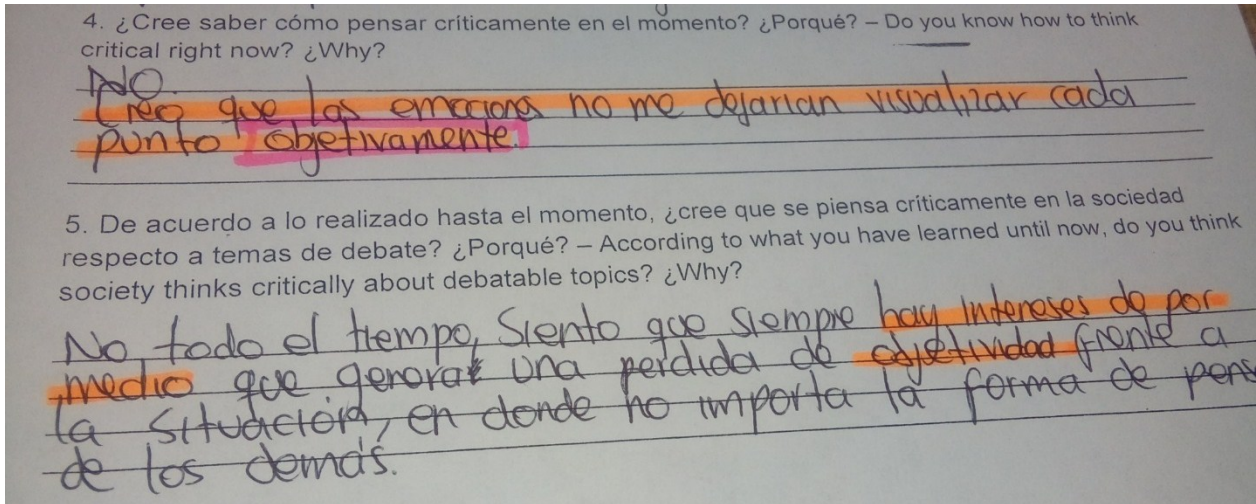 4. ¿Cree saber cómo pensar críticamente en el momento? ¿Porqué? – Do you know how to think
critical right now? ¿Why?
NO.
Creo que las emociones no me dejarian visualizar cada
punto objetivamente.
5. De acuerdo a lo realizado hasta el momento, ¿cree que se piensa críticamente en la sociedad
respecto a temas de debate? ¿Porqué? – According to what you have learned until now, do you think
society thinks critically about debatable topics? ¿Why?
No todo el tiempo, Siento que siempre hay intereses de por
medio que generar una perdida de objetividad frente a
la situación, en donde no importa la forma de pens
de los demás.